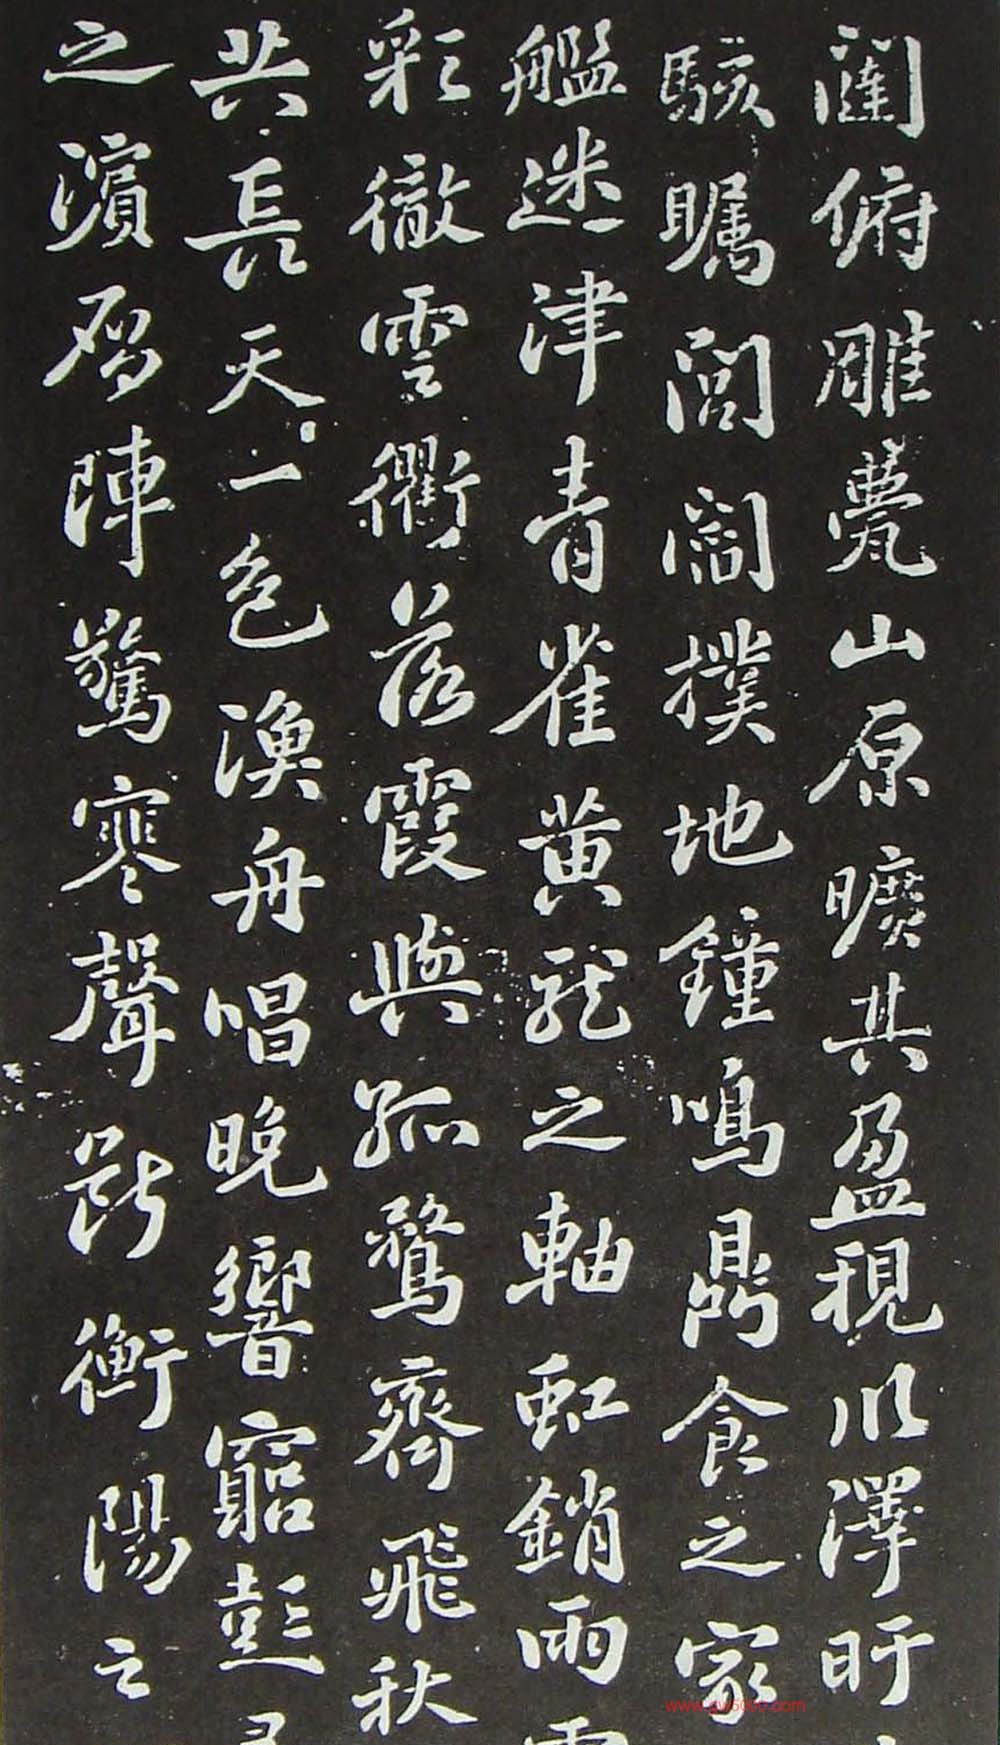 闥俯雕甍山原曠其盈視川澤盱
駭矚閭閻撲地鐘鳴鼎食之家
艦迷津青雀黃龍之軸虹銷雨
彩徹雲衢落霞與孤鶩齊飛秋
共長天一色漁舟唱晚響窮彭
之濱鴈陣驚寒聲斷衡陽之